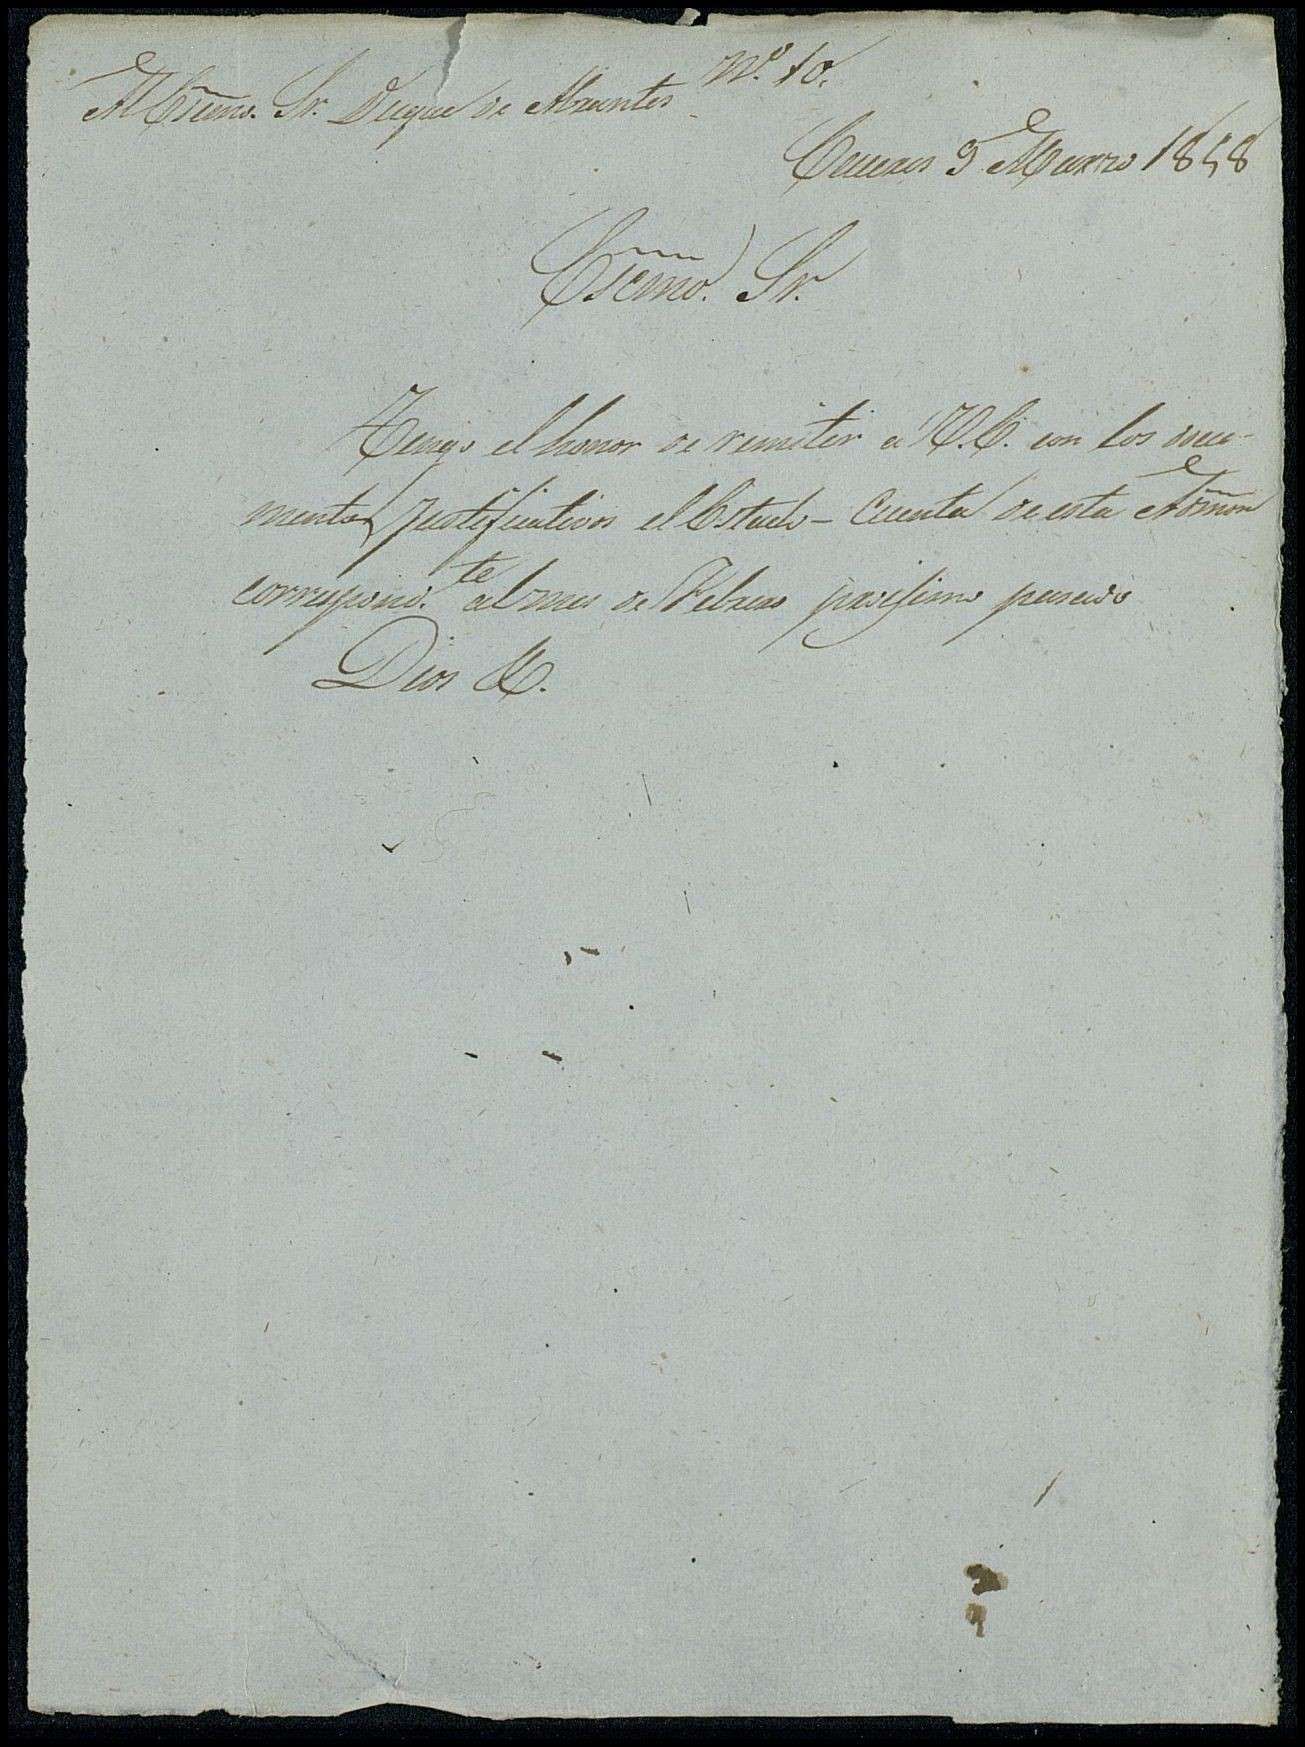 Nº. 10.
Al Escmo. Sr. Duque de Abrantes
Caceres 9 Marzo 1858
Escmo. Sr.
Tengo el honor de remitir a V.E. con los docu-
mentos justificativos el Estado-Cuenta de esta Admon
correspond.te al mes de Febrero proximo pasado
Dios &.